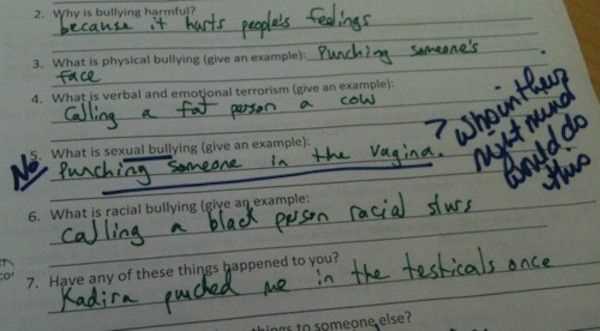 2. Why is bullying harmful?
because it hurts people's feelings
3. What is physical bullying (give an example): Punching someone's
face
4. What is verbal and emotional terrorism (give an example):
Calling a fat person a cow
5. What is sexual bullying (give an example):
No
Punching someone in the vagina.
? Who in their
right mind
would do
this
6. What is racial bullying (give an example:
calling a black person racial slurs
7. Have any of these things happened to you?
Kadira punched me in the testicals once
things to someone else?